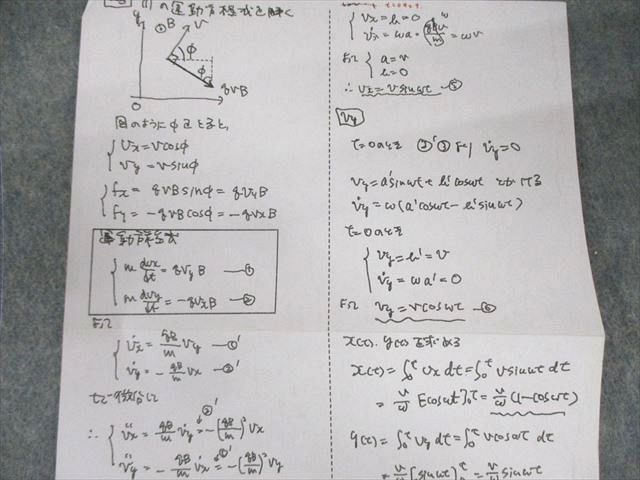 (1)の運動方程式を解く
y
⊙B
v
φ
φ
qvB
O
図のようにφをとると,
vx = vcosφ
vy = vsinφ
fx = qvBsinφ = qvyB
fy = -qvBcosφ = -qvxB
運動方程式
m dvx/dt = qvyB ―①
m dvy/dt = -qvxB ―②
よって
v̇x = qB/m vy ―①'
v̇y = -qB/m vx ―②'
tで微分して
②'
∴ v̈x = qB/m v̇y = -(qB/m)² vx
①'
v̈y = -qB/m v̇x = -(qB/m)² vy
vx = b = 0
v̇x = ωa = qBv/m = ωv
ω
よって
a = v
b = 0
∴ vx = vsinωt ―⑤
vy
t=0のとき ②'③より v̇y = 0
vy = a'sinωt + b'cosωt とおける
v̇y = ω(a'cosωt - b'sinωt)
t=0のとき
vy = b' = v
v̇y = ωa' = 0
よって vy = vcosωt ―⑥
x(t), y(t)を求める
x(t) = ∫₀ᵗ vx dt = ∫₀ᵗ vsinωt dt
= v/ω [-cosωt]₀ᵗ = v/ω (1-cosωt)
y(t) = ∫₀ᵗ vy dt = ∫₀ᵗ vcosωt dt
= v/ω [sinωt]₀ᵗ = v/ω sinωt